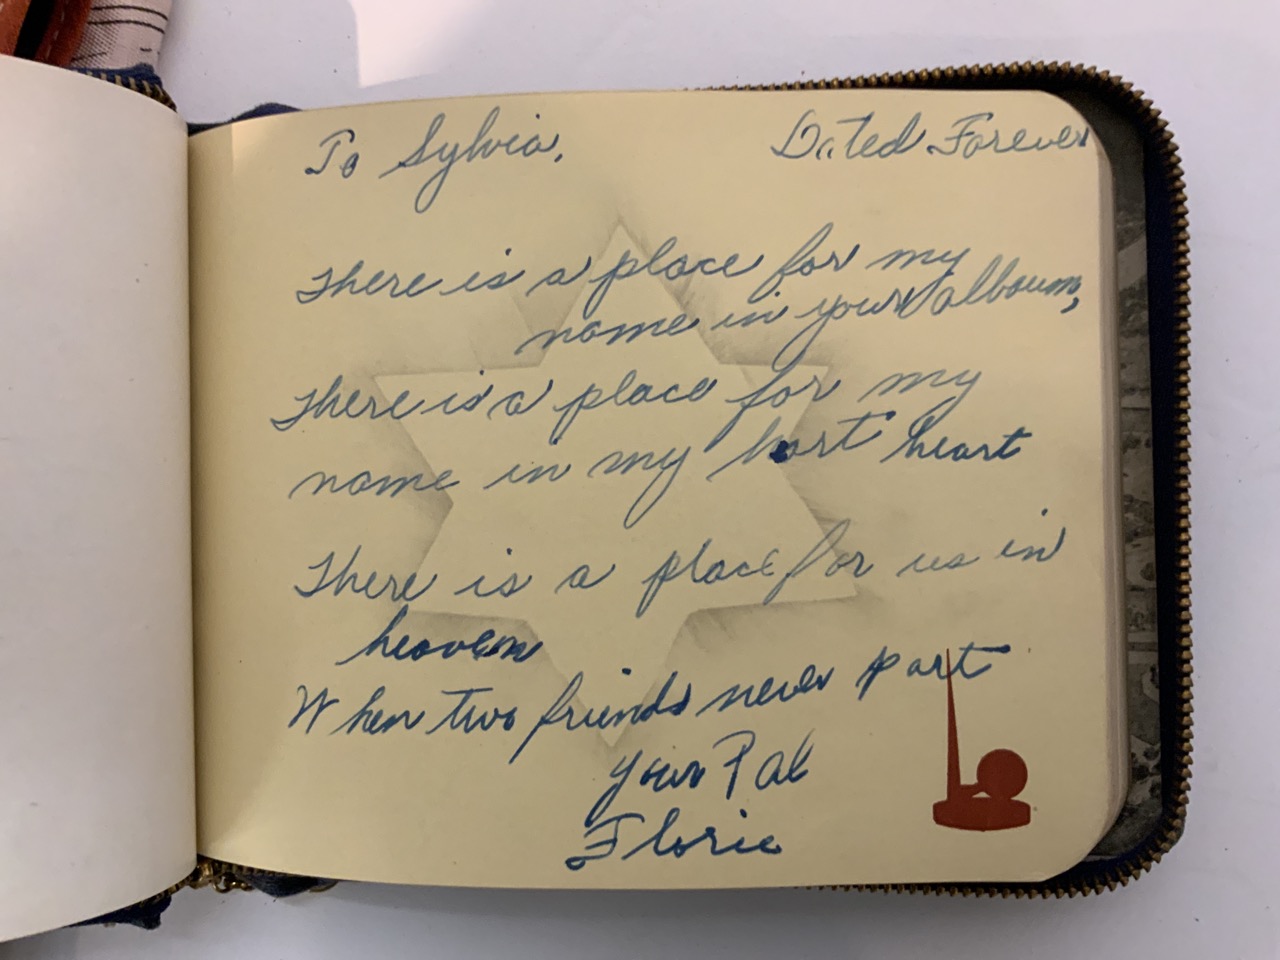 To Sylvia,
Dated Forever
There is a place for my
name in your album,
There is a place for my
name in my hart heart
There is a place for us in
heaven
When two friends never part
your Pal
Florie